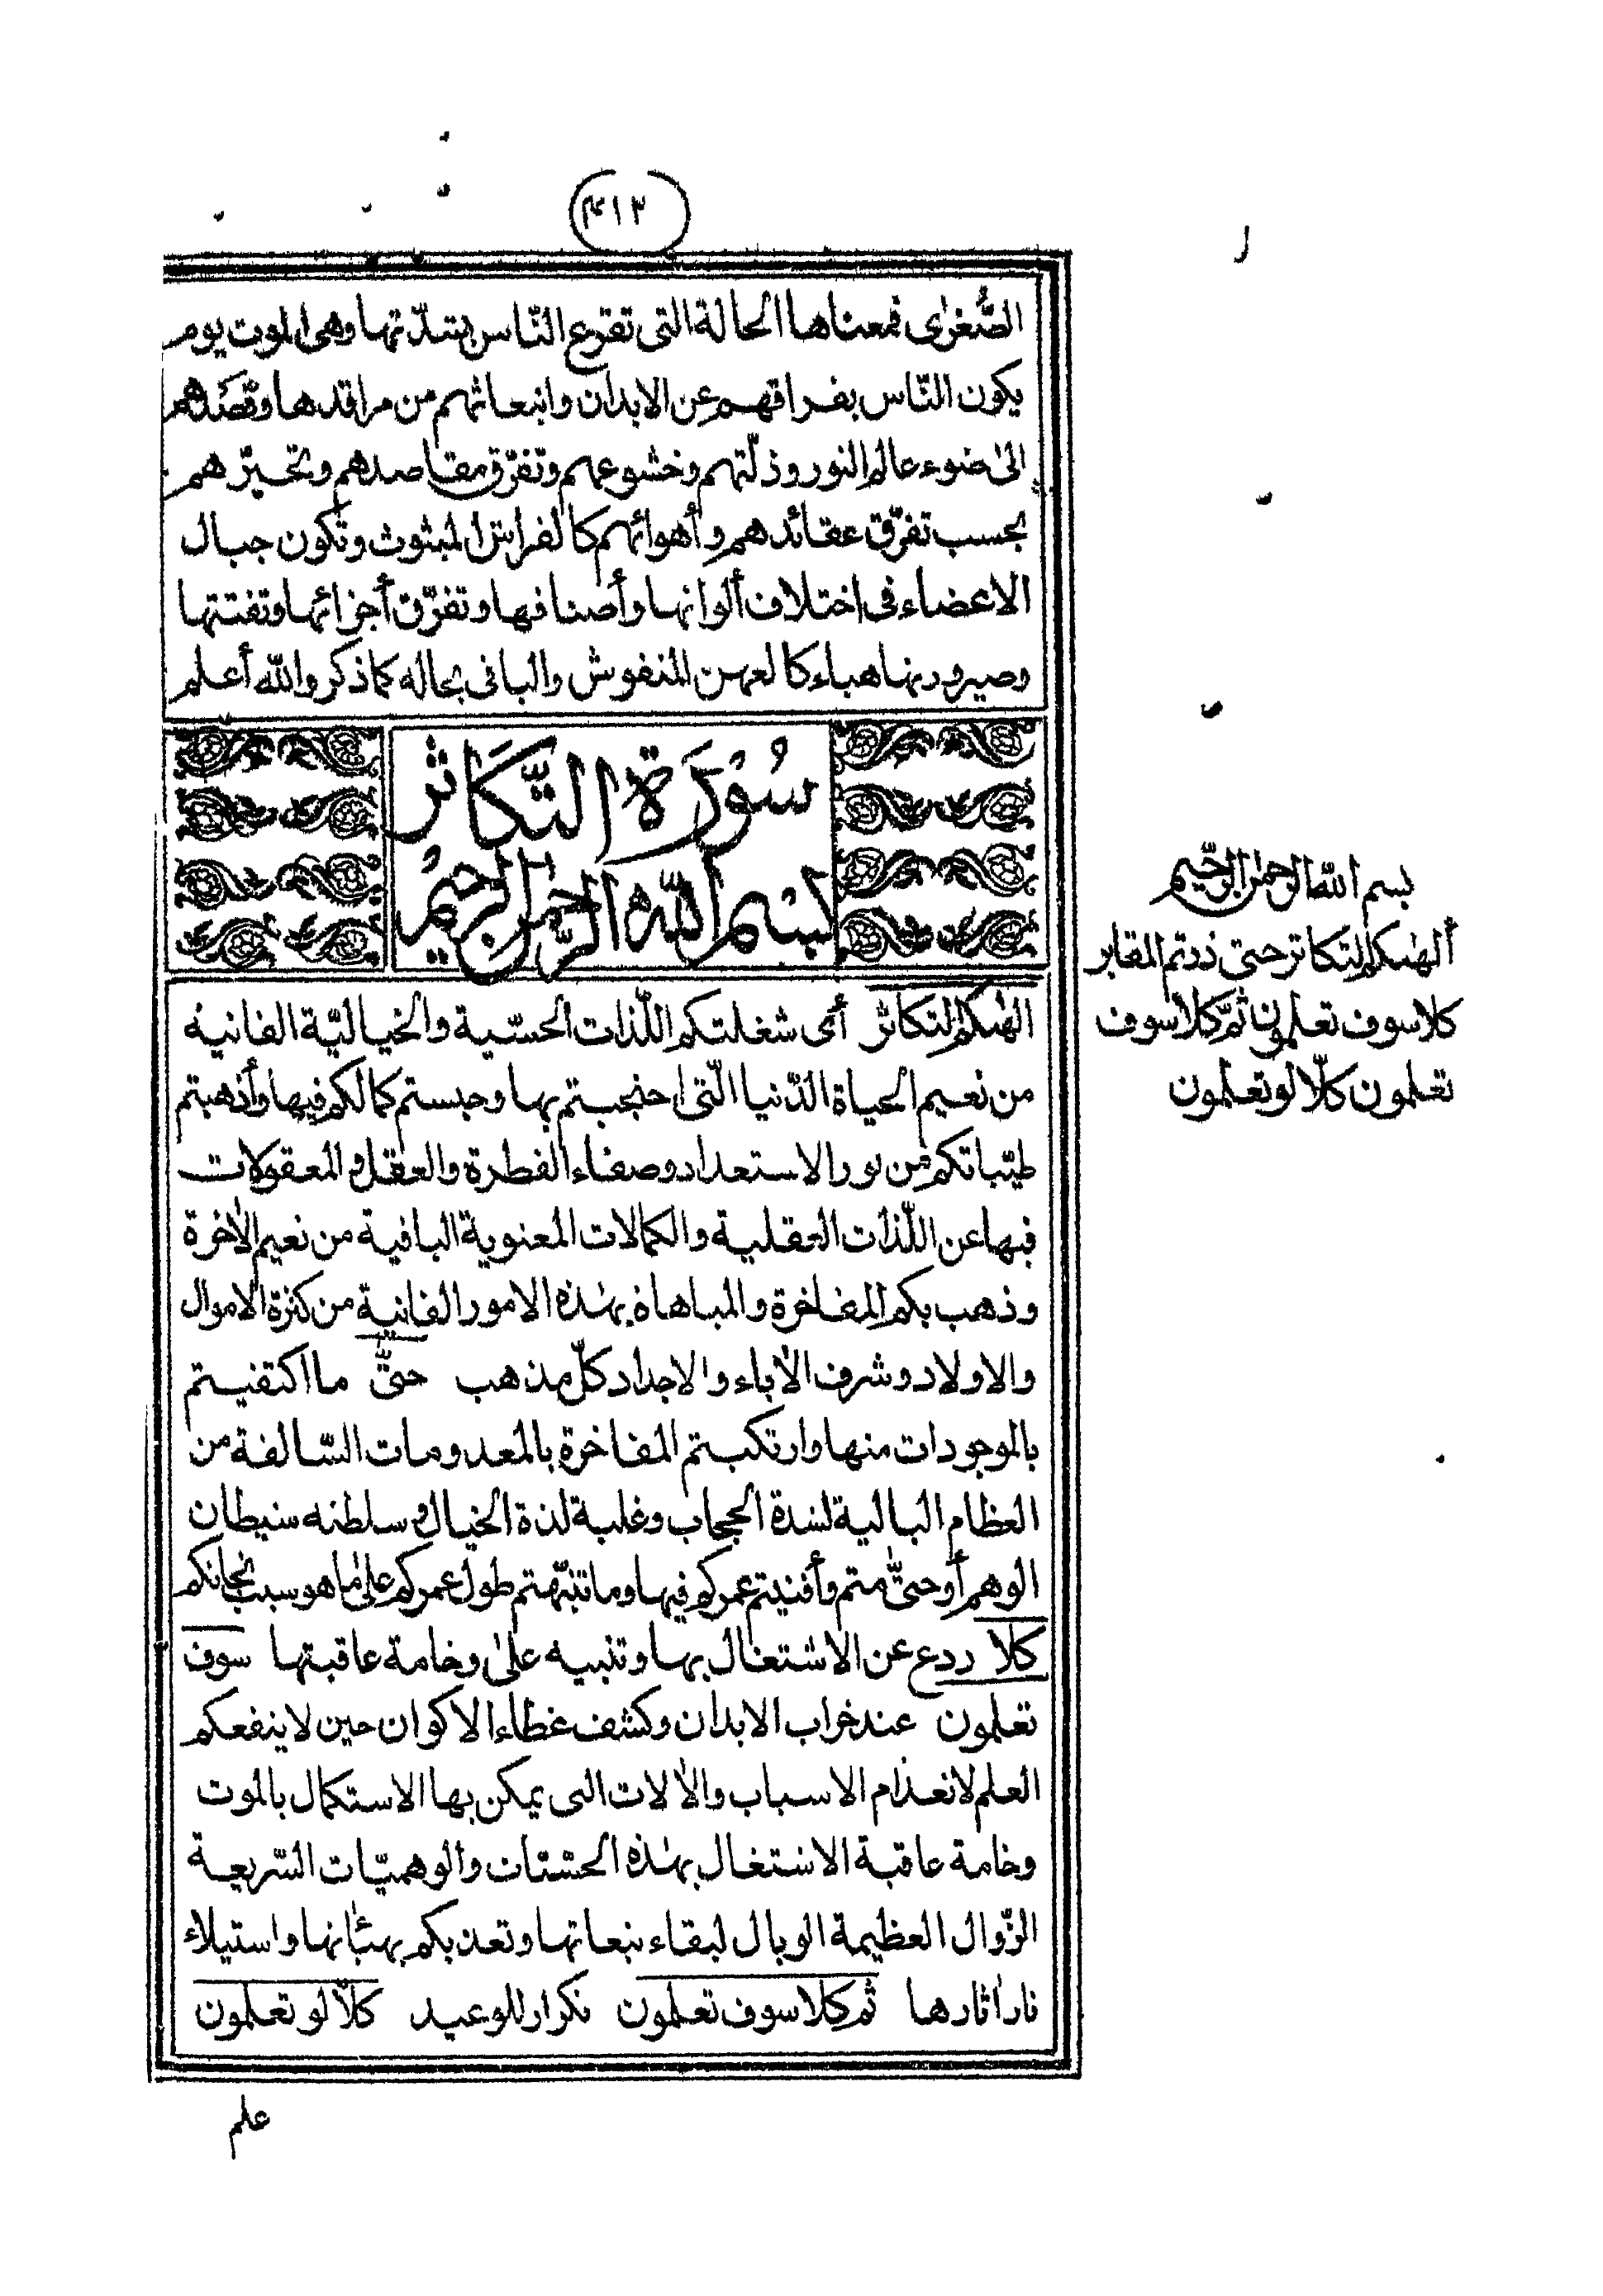 ٤١٣
الصُّغرٰى فمعناها الحالة التى تقرع النّاس بشدّتها وهى الموت يوم
يكون النّاس بفراقهم عن الابدان وانبعاثهم من مراقدها وقصدهم
الىٰ ضوء عالم النور وذلّتهم وخشوعهم وتفرّق مقاصدهم وتحيّرهم
بحسب تفرّق عقائدهم وأهوائهم كالفراش المبثوث وتكون جبال
الاعضاء فى اختلاف ألوانها وأصنافها وتفرّق أجزائها وتفتتها
وصيرورتها هباء كالعهن المنفوش والباقى بحاله كما ذكر والله أعلم
سُورَة التَّكَاثر
بسم الله الرحمٰن الرحيم
الهٰكم التكاثر أى شغلتكم اللّذات الحسّية والخياليّة الفانيه
من نعيم الحياة الدّنيا الّتى احتجبتم بها وحبستم كمالكم فيها وأذهبتم
طيّباتكم من نور الاستعداد وصفاء الفطرة والعقل والمعقولات
فيها عن اللّذات العقلية والكمالات المعنوية الباقية من نعيم الاٰخرة
وذهب بكم المفاخرة والمباهاة بهٰذه الامور الفانية من كثرة الاموال
والاولاد وشرف الاٰباء والاجداد كلّ مذهب حتىّٰ ما اكتفيتم
بالموجودات منها وارتكبتم المفاخرة بالمعدومات السّالفة من
العظام البالية لشدة الحجاب وغلبة لذة الخيال وسلطنه شيطان
الوهم أو حتىّٰ متم وأفنيتم عمركم فيها وما تنبّهتم طول عمركم علىٰ ما هو سبب نجاتكم
كلا ردع عن الاشتغال بها وتنبيه علىٰ وخامة عاقبتها سوف
تعلمون عند خراب الابدان وكشف غطاء الاكوان حين لا ينفعكم
العلم لانعدام الاسباب والاٰلات التى يمكن بها الاستكمال بالموت
وخامة عاقبة الاشتغال بهٰذه الحسّيّات والوهميّات السّريعة
الزّوال العظيمة الوبال لبقاء تبعاتها وتعذبكم بهيئاٰتها واستيلاء
نار اٰثارها ثم كلا سوف تعلمون تكرار للوعيد كلّا لو تعلمون
علم
بسم الله الرحمٰن الرحيم
ألهٰىكم التكاثر حتى زرتم المقابر
كلا سوف تعلمون ثمّ كلا سوف
تعلمون كلّا لو تعلمون